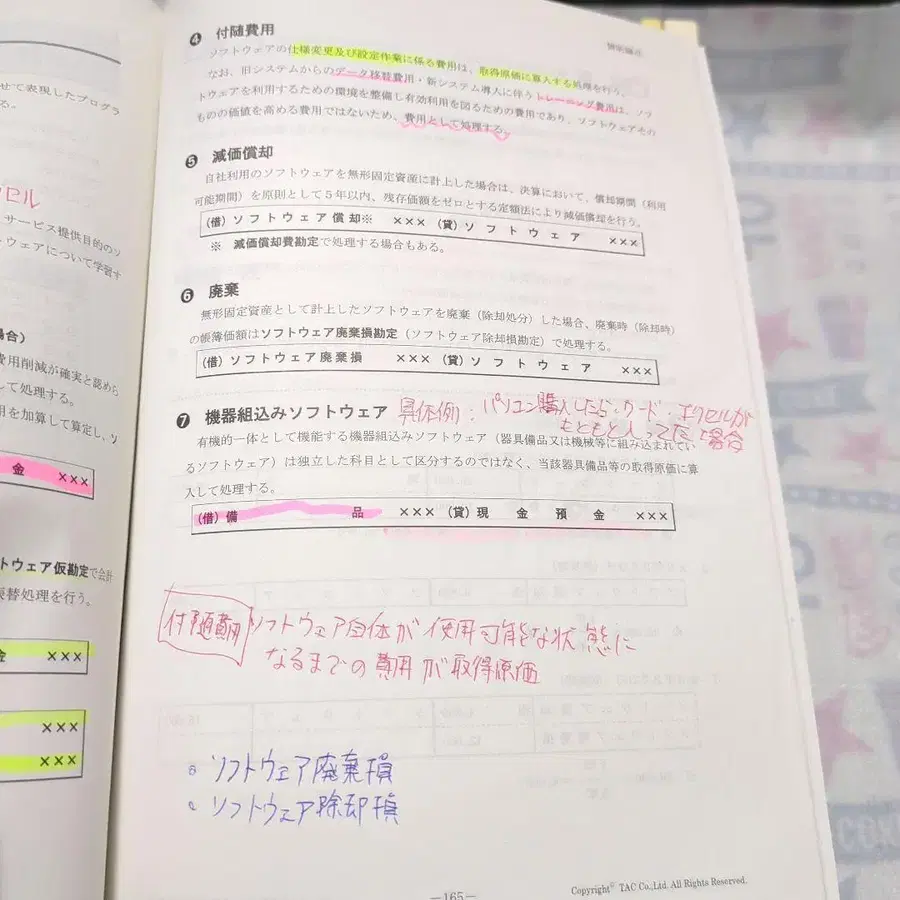 せて表現したプログラ
る。
セル
サービス提供目的のソ
トウェアについて学習す
場合)
費用削減が確実と認めら
して処理する。
用を加算して算定し、ソ
金 ×××
トウェア仮勘定で会計
振替処理を行う。
金 ×××
×××
×××
❹ 付随費用
ソフトウェアの仕様変更及び設定作業に係る費用は、取得原価に算入する処理を行う。
なお、旧システムからのデータ移替費用・新システム導入に伴うトレーニング費用は、ソフ
トウェアを利用するための環境を整備し有効利用を図るための費用であり、ソフトウェアその
ものの価値を高める費用ではないため、費用として処理する。
❺ 減価償却
自社利用のソフトウェアを無形固定資産に計上した場合は、決算において、償却期間(利用
可能期間)を原則として5年以内、残存価額をゼロとする定額法により減価償却を行う。
(借)ソフトウェア償却※ ××× (貸)ソフトウェア ×××
※ 減価償却費勘定で処理する場合もある。
❻ 廃棄
無形固定資産として計上したソフトウェアを廃棄(除却処分)した場合、廃棄時(除却時)
の帳簿価額はソフトウェア廃棄損勘定(ソフトウェア除却損勘定)で処理する。
(借)ソフトウェア廃棄損 ××× (貸)ソフトウェア ×××
❼ 機器組込みソフトウェア 具体例:パソコン購入したら・ワード・エクセルが
もともと入ってた場合
有機的一体として機能する機器組込みソフトウェア(器具備品又は機械等に組み込まれてい
るソフトウェア)は独立した科目として区分するのではなく、当該器具備品等の取得原価に算
入して処理する。
(借)備品 ××× (貸)現金預金 ×××
付随費用 ソフトウェア自体が使用可能な状態に
なるまでの費用が取得原価
。ソフトウェア廃棄損
。ソフトウェア除却損
—165—
Copyright© TAC Co.,Ltd. All Rights Reserved.